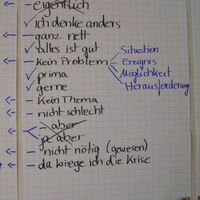 eigentlich
ich denke anders
ganz nett
alles ist gut
kein Problem
Situation
Ereignis
Möglichkeit
Herausforderung
prima
gerne
kein Thema
nicht schlecht
... aber
ja aber
nicht nötig (gewesen)
da kriege ich die Krise